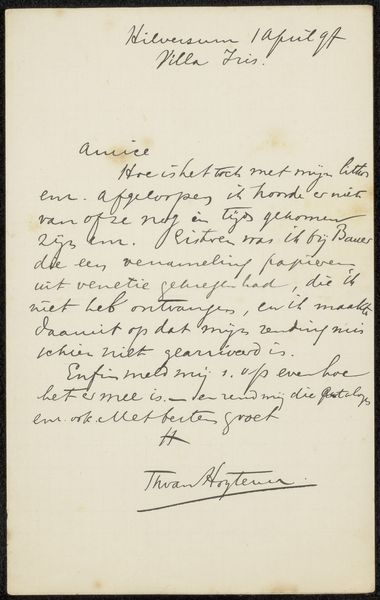 Hilversum 1 April 97
Villa Iris.
Amice
Hoe is het toch met mijn litho's
enz. afgeloopen ik hoorde er niets
van of ze nog in tijds gekomen
zijn enz. Gisteren was ik bij Bauer
die een verzameling papieren
uit Venetie gekregen had, die ik
niet heb ontvangen, en ik maakte
daaruit op dat mijn zending mis
schien niet gearriveerd is.
Enfin meld mij s.v.p even hoe
het er mee is — en zend mij die Catalogus
enz. ook. Met besten groet
Th van Hoytema